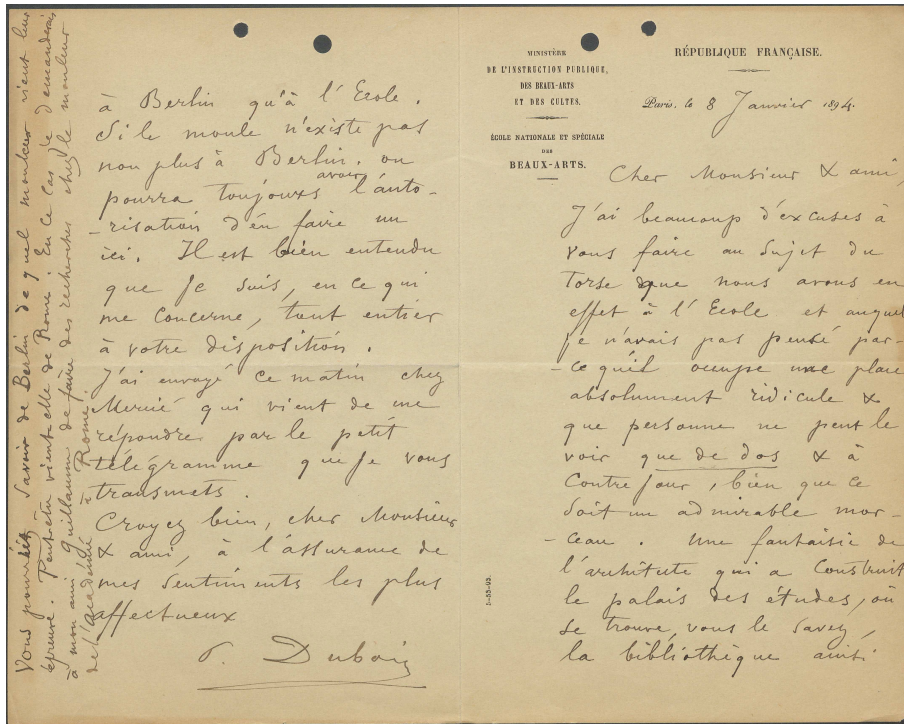 MINISTÈRE
DE L'INSTRUCTION PUBLIQUE,
DES BEAUX-ARTS
ET DES CULTES.
ÉCOLE NATIONALE ET SPÉCIALE
DES
BEAUX-ARTS.
RÉPUBLIQUE FRANÇAISE.
Paris, le 8 Janvier 1894.
Cher Monsieur & ami,
J'ai beaucoup d'excuses à
vous faire au sujet du
Torse que nous avons en
effet à l'Ecole et auquel
je n'avais pas pensé par-
-ce qu'il occupe une place
absolument ridicule &
que personne ne peut le
voir que de dos & à
contrejour, bien que ce
soit un admirable mor-
-ceau. Une fantaisie de
l'architecte qui a construit
le palais des études, où
se trouve, vous le savez,
la bibliothèque ainsi
à Berlin qu'à l'Ecole.
Si le moule n'existe pas
non plus à Berlin, on
pourra toujours avoir l'auto-
-risation d'en faire un
ici. Il est bien entendu
que je suis, en ce qui
me concerne, tout entier
à votre disposition.
J'ai envoyé ce matin chez
Mercié qui vient de me
répondre par le petit
télégramme que je vous
transmets.
Croyez bien, cher Monsieur
& ami, à l'assurance de
mes sentiments les plus
affectueux
P. Dubois
Vous pourriez savoir de Berlin de quel mouleur vient leur
épreuve. Peut-être vient-elle de Rome. En ce cas je demanderais
à mon ami Guillaume de faire des recherches chez le mouleur
de l'académie à Rome.
J-55-93.